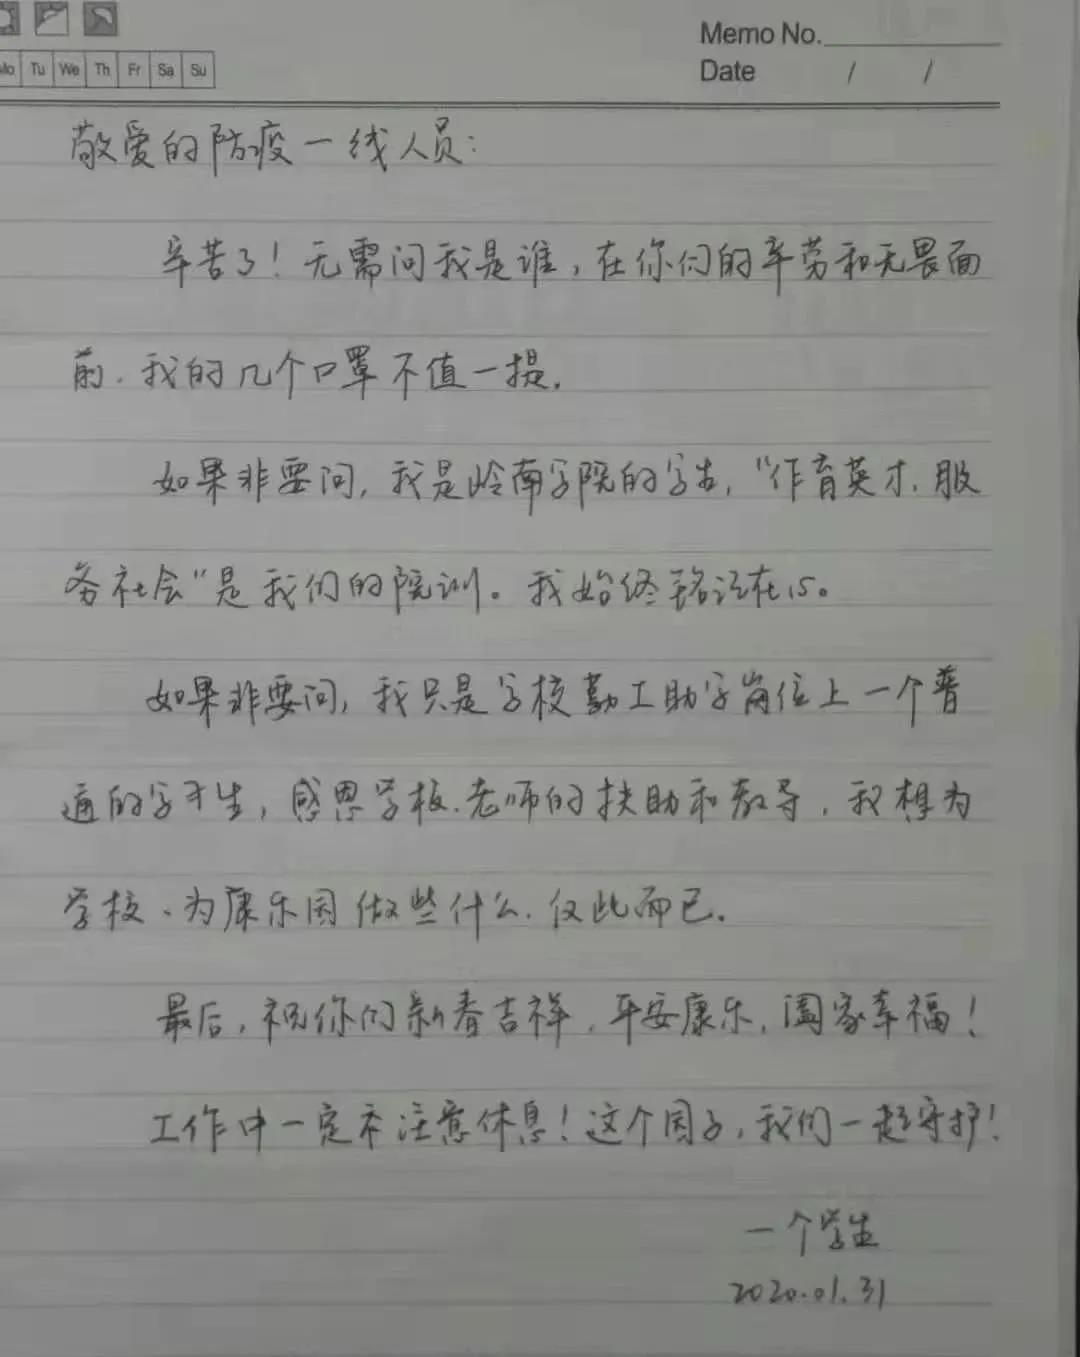 Memo No.
Mo Tu We Th Fr Sa Su
Date / /
敬爱的防疫一线人员：
辛苦了！无需问我是谁，在你们的辛劳和无畏面
前，我的几个口罩不值一提。
如果非要问，我是岭南学院的学生，“作育英才，服
务社会”是我们的院训。我始终铭记在心。
如果非要问，我只是学校勤工助学岗位上一个普
通的学生，感恩学校、老师的扶助和教导，我想为
学校、为康乐园做些什么，仅此而已。
最后，祝你们新春吉祥，平安康乐，阖家幸福！
工作中一定要注意休息！这个园子，我们一起守护！
一个学生
2020.01.31